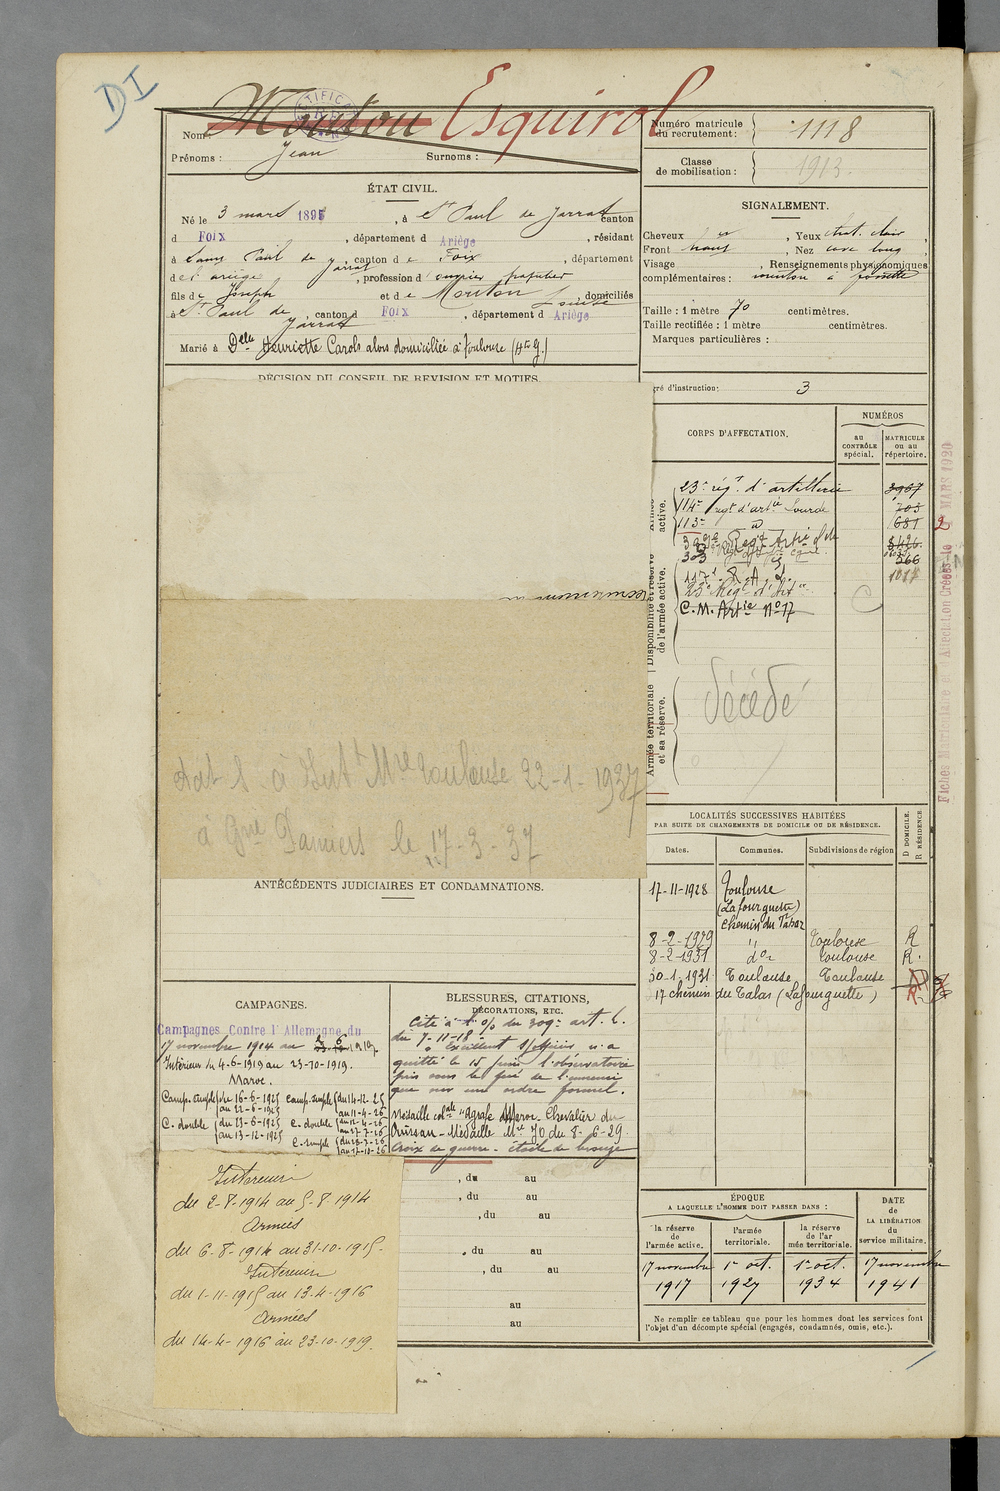 DI
Nom : Mouton Esquirol
RECTIFICATION
Prénoms : Jean Surnoms :
Numéro matricule du recrutement : 1118
Classe de mobilisation : 1913
ÉTAT CIVIL.
Né le 3 mars 1895, à St Paul de Jarrat canton
d Foix, département d Ariège, résidant
à Saint Paul de Jarrat, canton de Foix, département
de l'ariège, profession d'ouvrier papetier
fils de Joseph et de Mouton Louise, domiciliés
à St Paul de Jarrat, canton d Foix, département d Ariège
Marié à Delle Henriette Carols alors domiciliée à Toulouse (Hte G.)
DÉCISION DU CONSEIL DE REVISION ET MOTIFS.
SIGNALEMENT.
Cheveux, Yeux chat. clair,
Front haut, Nez cave long
Visage, Renseignements physionomiques
complémentaires : menton à fossette
Taille : 1 mètre 70 centimètres.
Taille rectifiée : 1 mètre centimètres.
Marques particulières :
gré d'instruction : 3
CORPS D'AFFECTATION.
NUMÉROS
au CONTRÔLE spécial.
MATRICULE ou au répertoire.
active.
Disponibilité et réserve de l'armée active.
Armée territoriale et sa réserve.
23e régt d'artillerie 3907
114e regt d'artie Lourde 703
113e d° 681
309e Regt Artie 8426
303 266
117e R.A.L. 1017
23e Régt d'Artie
C.M. Artie N° 17
C
décédé
Fiches Matriculaire et d'Affectation Créées le 2 MARS 1920
dét s à Int Mre Toulouse 22-1-1937
à Gme Pamiers le 17-3-37
ANTÉCÉDENTS JUDICIAIRES ET CONDAMNATIONS.
LOCALITÉS SUCCESSIVES HABITÉES
PAR SUITE DE CHANGEMENTS DE DOMICILE OU DE RÉSIDENCE.
Dates. Communes. Subdivisions de région D DOMICILE. R RÉSIDENCE
17-11-1928 Toulouse
(Lafourguette)
chemin du Tabar
8-2-1929 " Toulouse R
8-2-1931 d° Toulouse R.
30-1-1931 Toulouse Toulouse
17 chemin du Talar (Lafourguette) R
CAMPAGNES.
Campagnes Contre l'Allemagne du
17 novembre 1914 au 3-6-1919.
Intérieur du 4-6-1919 au 23-10-1919.
Maroc.
Camp. simple du 16-6-1925 au 22-6-1925
C. double du 23-6-1925 au 13-12-1925
Camp. simple du 14-12-25 au 11-4-26
C. double du 12-4-26 au 27-7-26
C. simple du 28-7-26 au 17-10-26
BLESSURES, CITATIONS, DÉCORATIONS, ETC.
Cité à l'o/ du 309e art. l.
du 7-11-18 -
" Excellent s/officier n'a
quitté le 15 juin l'observatoire
pris sous le feu de l'ennemi
que sur un ordre formel.
Médaille colale "Agrafe Maroc. Chevalier du
Ouissan - Médaille Mre JO du 8-6-29.
Croix de guerre - étoile de bronze
Intérieur
du 2-8-1914 au 5-8-1914
Armées
du 6-8-1914 au 31-10-1915-
Intérieur
du 1-11-1915 au 13-4-1916
Armées
du 14-4-1916 au 23-10-1919.
, du au
, du au
, du au
, du au
, du au
au
au
ÉPOQUE
A LAQUELLE L'HOMME DOIT PASSER DANS :
la réserve de l'armée active.
l'armée territoriale.
la réserve de l'armée territoriale.
DATE de LA LIBÉRATION du service militaire.
17 novembre 1917
1er oct. 1927
1er oct. 1934
17 novembre 1941
Ne remplir ce tableau que pour les hommes dont les services font
l'objet d'un décompte spécial (engagés, condamnés, omis, etc.).